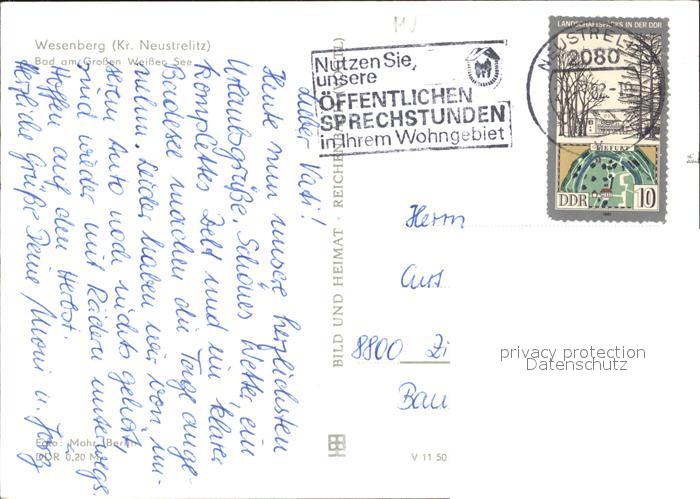 Wesenberg (Kr. Neustrelitz)
Bad am Großen Weißen See
Lieber Vati!
Heute nun unsere herzlichsten
Urlaubsgrüße. Schönes Wetter, ein
komplettes Zelt und ein klarer
Badesee machen die Tage ange-
nehm. Leider haben wir von un-
serem Auto noch nichts gehört,
sind wieder mit Rädern unterwegs.
Hoffen auf den Herbst.
Herzliche Grüße Deine Moni u. Jörg
Foto: Mohr, Berlin
DDR 0,20 M
BILD UND HEIMAT · REICHENBACH
V 11 50
Nutzen Sie,
unsere
ÖFFENTLICHEN
SPRECHSTUNDEN
in Ihrem Wohngebiet
NEUSTREL
2080
LANDSCHAFTSPARKS IN DER DDR
TIEFURT
DDR 10
Herrn
8800 Zi
Bau
privacy protection
Datenschutz